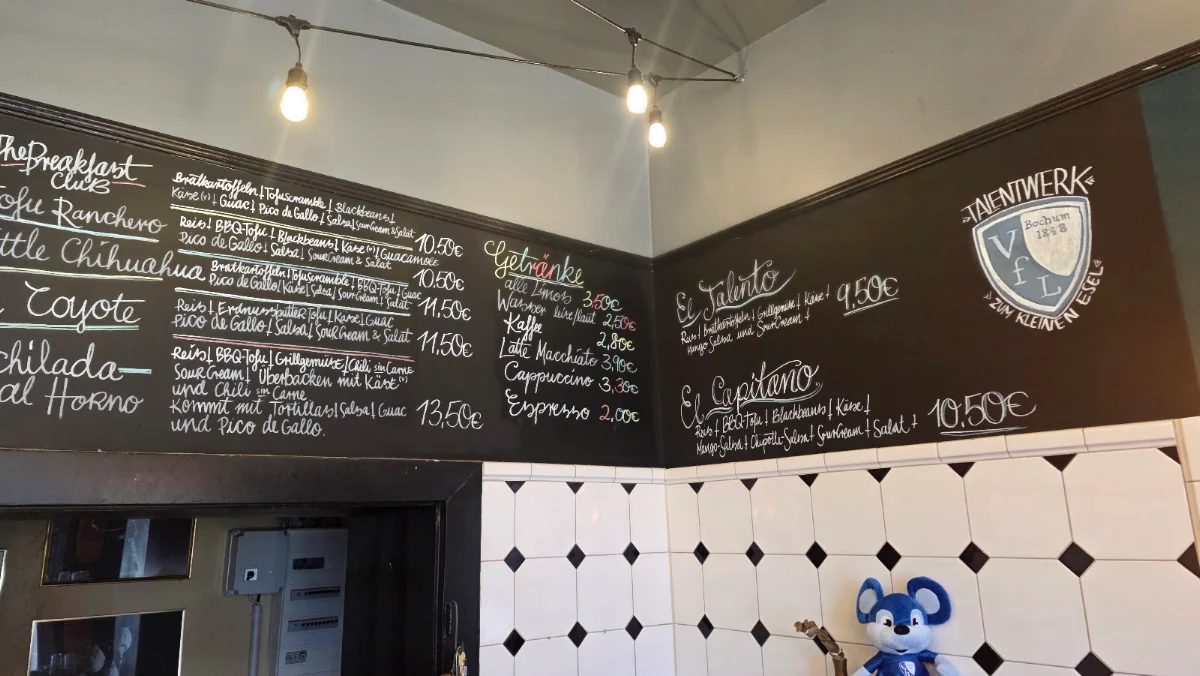 The Breakfast
Club
Bratkartoffeln | Tofuscramble | Blackbeans |
Käse (v) + Guac | Pico de Gallo | Salsa | SourCream & Salat
10.50€
Tofu Ranchero
Reis | BBQ-Tofu | Blackbeans | Käse (v) | Guacamole
Pico de Gallo | Salsa | SourCream & Salat
10.50€
ittle Chihuahua
Bratkartoffeln | Tofuscramble | BBQ-Tofu | Guac
Pico de Gallo | Käse | Salsa | SourCream | Salat
11,50€
Coyote
Reis | Erdnussbutter Tofu | Käse | Guac
Pico de Gallo | Salsa | SourCream & Salat
11,50€
chilada-
al Horno
Reis | BBQ-Tofu | Grillgemüse | Chili sin Carne
SourCream | Überbacken mit Käse (v)
und Chili sin Carne
Kommt mit Tortillas | Salsa | Guac
und Pico de Gallo.
13,50€
Getränke
alle Limos 3,50€
Wasser leise/laut 2,50€
Kaffee 2,80€
Latte Macchiato 3,90€
Cappuccino 3,30€
Espresso 2,00€
El Talento
Reis + Bratkartoffeln + Grillgemüse + Käse +
Mango Salsa und SourCream +
9,50€
El Capitano
Reis + BBQ-Tofu + Blackbeans + Käse +
Mango-Salsa + Chipotle-Salsa + SourCream + Salat +
10,50€
"TALENTWERK"
Bochum
1848
VfL
"ZUM KLEINEN ESEL"